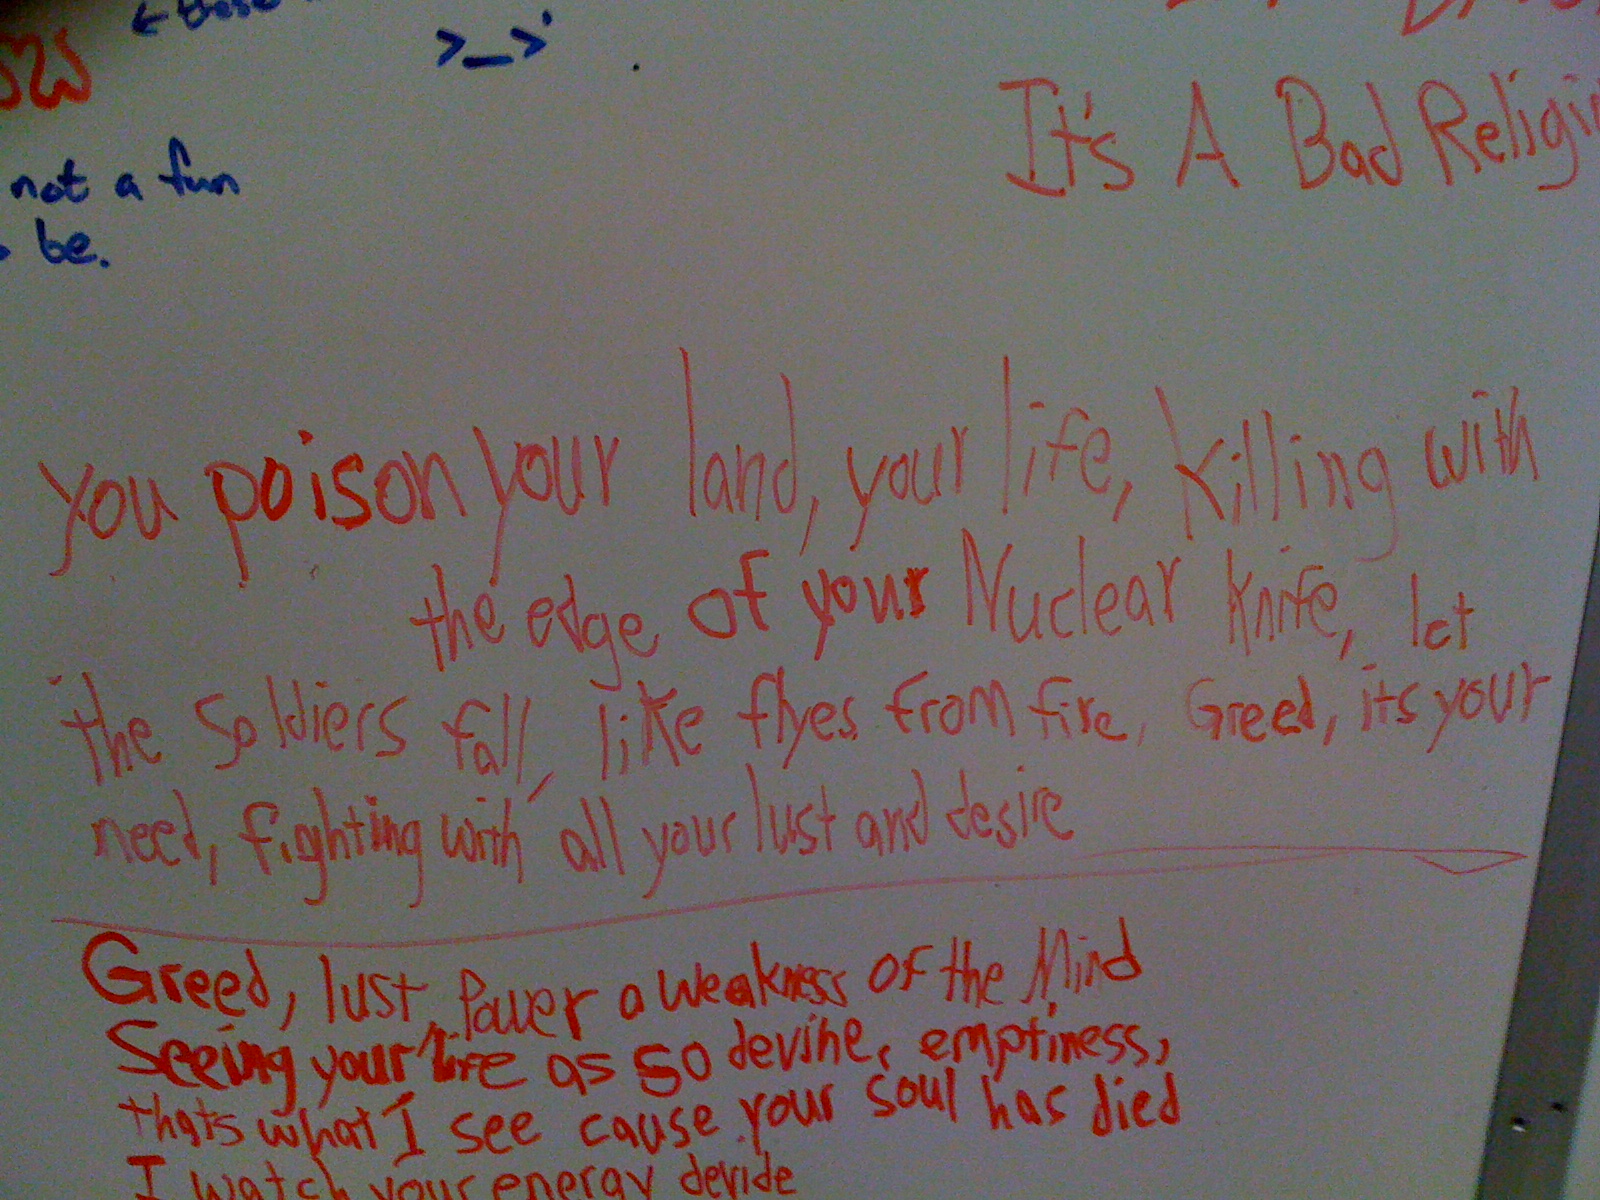 ← these
>_>'
It's A Bad Religi
not a fun
be.
You poison your land, your life, Killing with
the edge of your Nuclear Knife, let
the Soldiers fall, like flyes from fire, Greed, its your
need, fighting with all your lust and desire
Greed, lust, Power a weakness of the Mind
Seeing your life as so devine, emptiness,
thats what I see cause your soul has died
I watch your energy devide